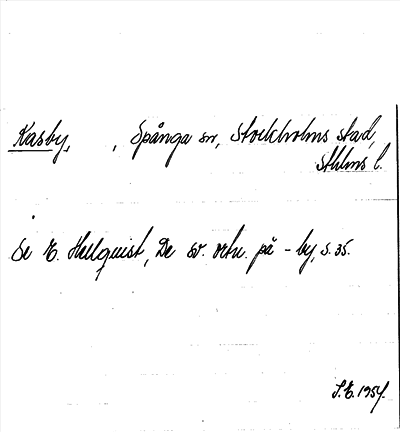 Kasby, , Spånga sn, Stockholms stad,
Sthlms l.
Se E. Hellquist, De sv. ortn. på - by, s. 35.
S.E. 1954.